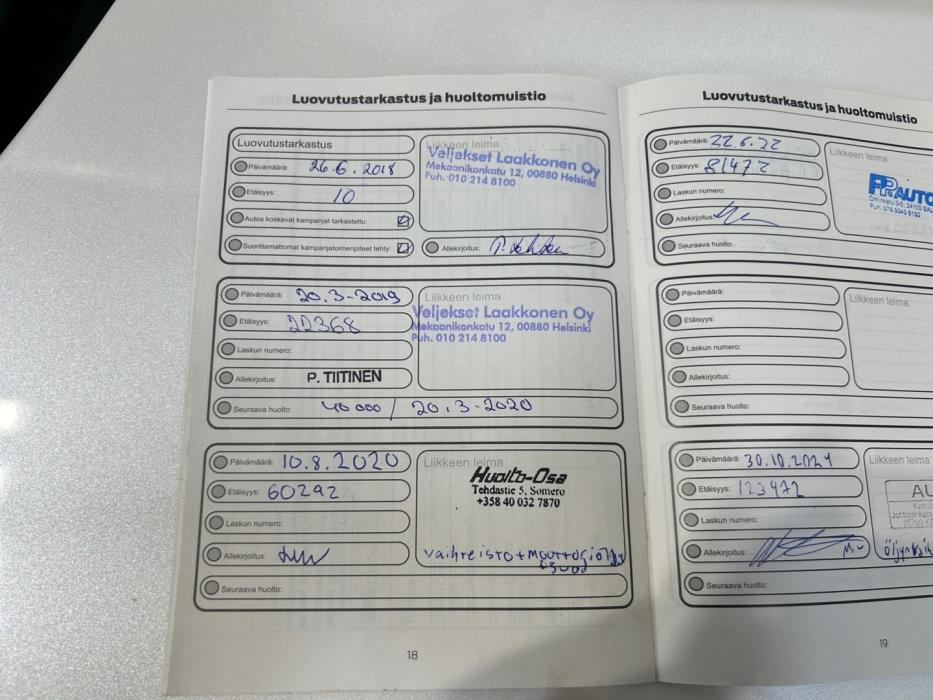 Luovutustarkastus ja huoltomuistio
Luovutustarkastus
Päivämäärä: 26.6.2018
Etäisyys: 10
Autoa koskevat kampanjat tarkastettu:
Suorittamattomat kampanjatoimenpiteet tehty:
Liikkeen leima
Veljekset Laakkonen Oy
Mekaanikonkatu 12, 00880 Helsinki
Puh. 010 214 8100
Allekirjoitus:
Päivämäärä: 20.3-2019
Etäisyys: 22368
Laskun numero:
Allekirjoitus: P. TIITINEN
Seuraava huolto: 40 000 / 20.3-2020
Liikkeen leima
Veljekset Laakkonen Oy
Mekaanikonkatu 12, 00880 Helsinki
Puh. 010 214 8100
Päivämäärä: 10.8.2020
Etäisyys: 60292
Laskun numero:
Allekirjoitus:
Seuraava huolto:
Liikkeen leima
Huolto-Osa
Tehdastie 5, Somero
+358 40 032 7870
vaihteisto+moottoriöljy
18
Luovutustarkastus ja huoltomuistio
Päivämäärä: 22.6.22
Etäisyys: 81472
Laskun numero:
Allekirjoitus:
Seuraava huolto:
Liikkeen leima
AUTO
Päivämäärä:
Etäisyys:
Laskun numero:
Allekirjoitus:
Seuraava huolto:
Liikkeen leima
Päivämäärä: 30.10.2024
Etäisyys: 123472
Laskun numero:
Allekirjoitus:
Seuraava huolto:
Liikkeen leima
AU
19